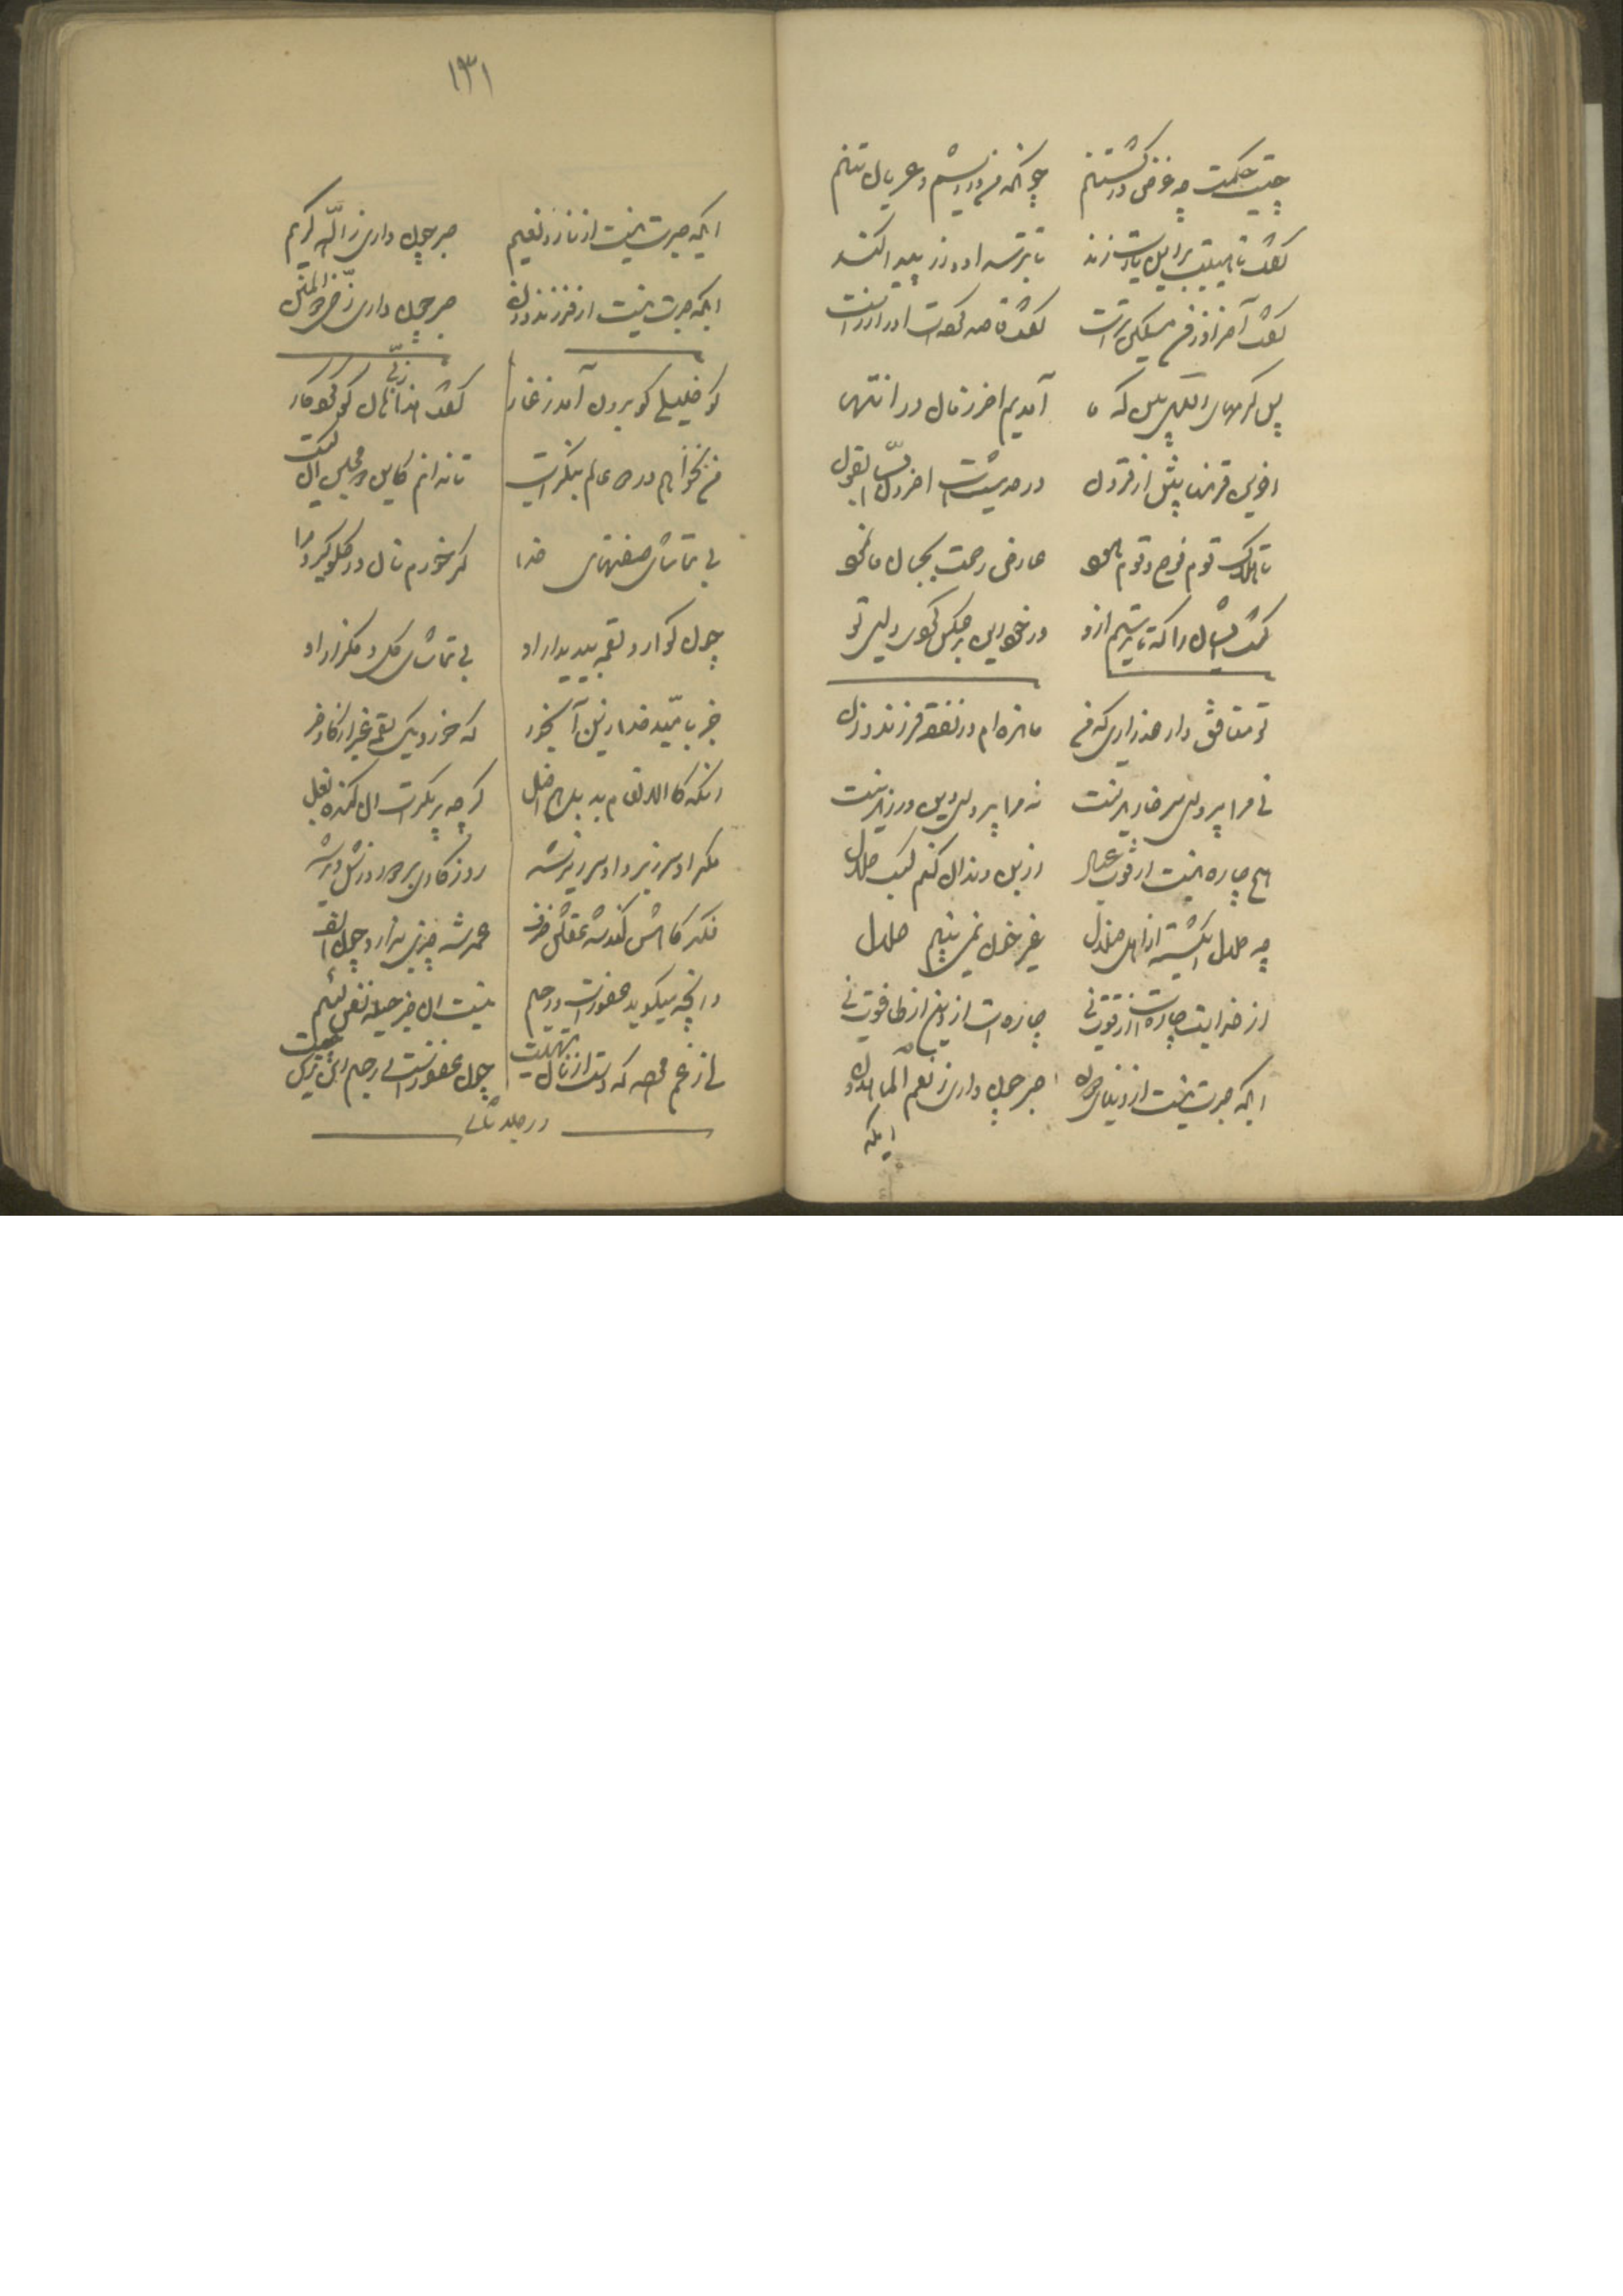 چیست حکمت چه غرض در کشتنم چونکه من درویشم و عریان تنم
گفت تا هیبت برین یارت زند تا بترسد او و زر پیدا کند
گفت آخر او ز من مسکین‌ترست گفت قاصد کرده است او را زرست
پس کرمهای الهی بین که ما آمدیم آخر زمان در انتها
آخرین قرنها پیش از قرون در حدیثست آخرون السابقون
تا هلاک قوم نوح و قوم هود عارض رحمت بجان ما نمود
کشت ایشان را که تا ترسیم ازو در خود این بر عکس کردی وای تو
تو منافق وار عذر آری که من مانده‌ام در نفقه فرزند و زن
نی مرا پروای سر خاریدنست نه مرا پروای دین ورزیدنست
هیچ چاره نیست از قوت عیال از بن دندان کنم کسب حلال
چه حلال ای گشته از اهل ضلال غیر خون تو نمی‌بینم حلال
از خدایت چاره است از قوت نی چاره است از دین و از طاغوت نی
ایکه صبرت نیست از دنیای دون صبر چون داری ز نعم الماهدون
ایکه
۱۳۱
ایکه صبرت نیست از ناز و نعیم صبر چون داری ز الله کریم
ایکه صبرت نیست از فرزند و زن صبر چون داری ز حی ذوالمنن
کو خلیلی کو برون آمد ز غار گفت هذا ربی هان کو کردگار
من نخواهم در دو عالم بنگریست تا ندانم کاین دو مجلس آن کیست
بی تماشای صفتهای خدا گر خورم نان در گلو گیرد مرا
چون گوارد لقمه بی دیدار او بی تماشای گل و گلزار او
جز بامید خدا زین آبخور که خورد یک لقمه غیر از گاو و خر
آنکه کالانعام بد بل هم اضل گرچه پر مکرست آن گنده بغل
مکر او سر زیر و او سر زیر شد روزکی چند برد و روزش دیر شد
فکر گاهش کند شد عقلش خرف عمر شد چیزی ندارد چون الف
وانچه میگوید غفورست و رحیم نیست آن جز حیله نفس لئیم
ای ز غم مرده که دست از نان تهیست چون غفورست و رحیم این ترس چیست
در جلد ثانی